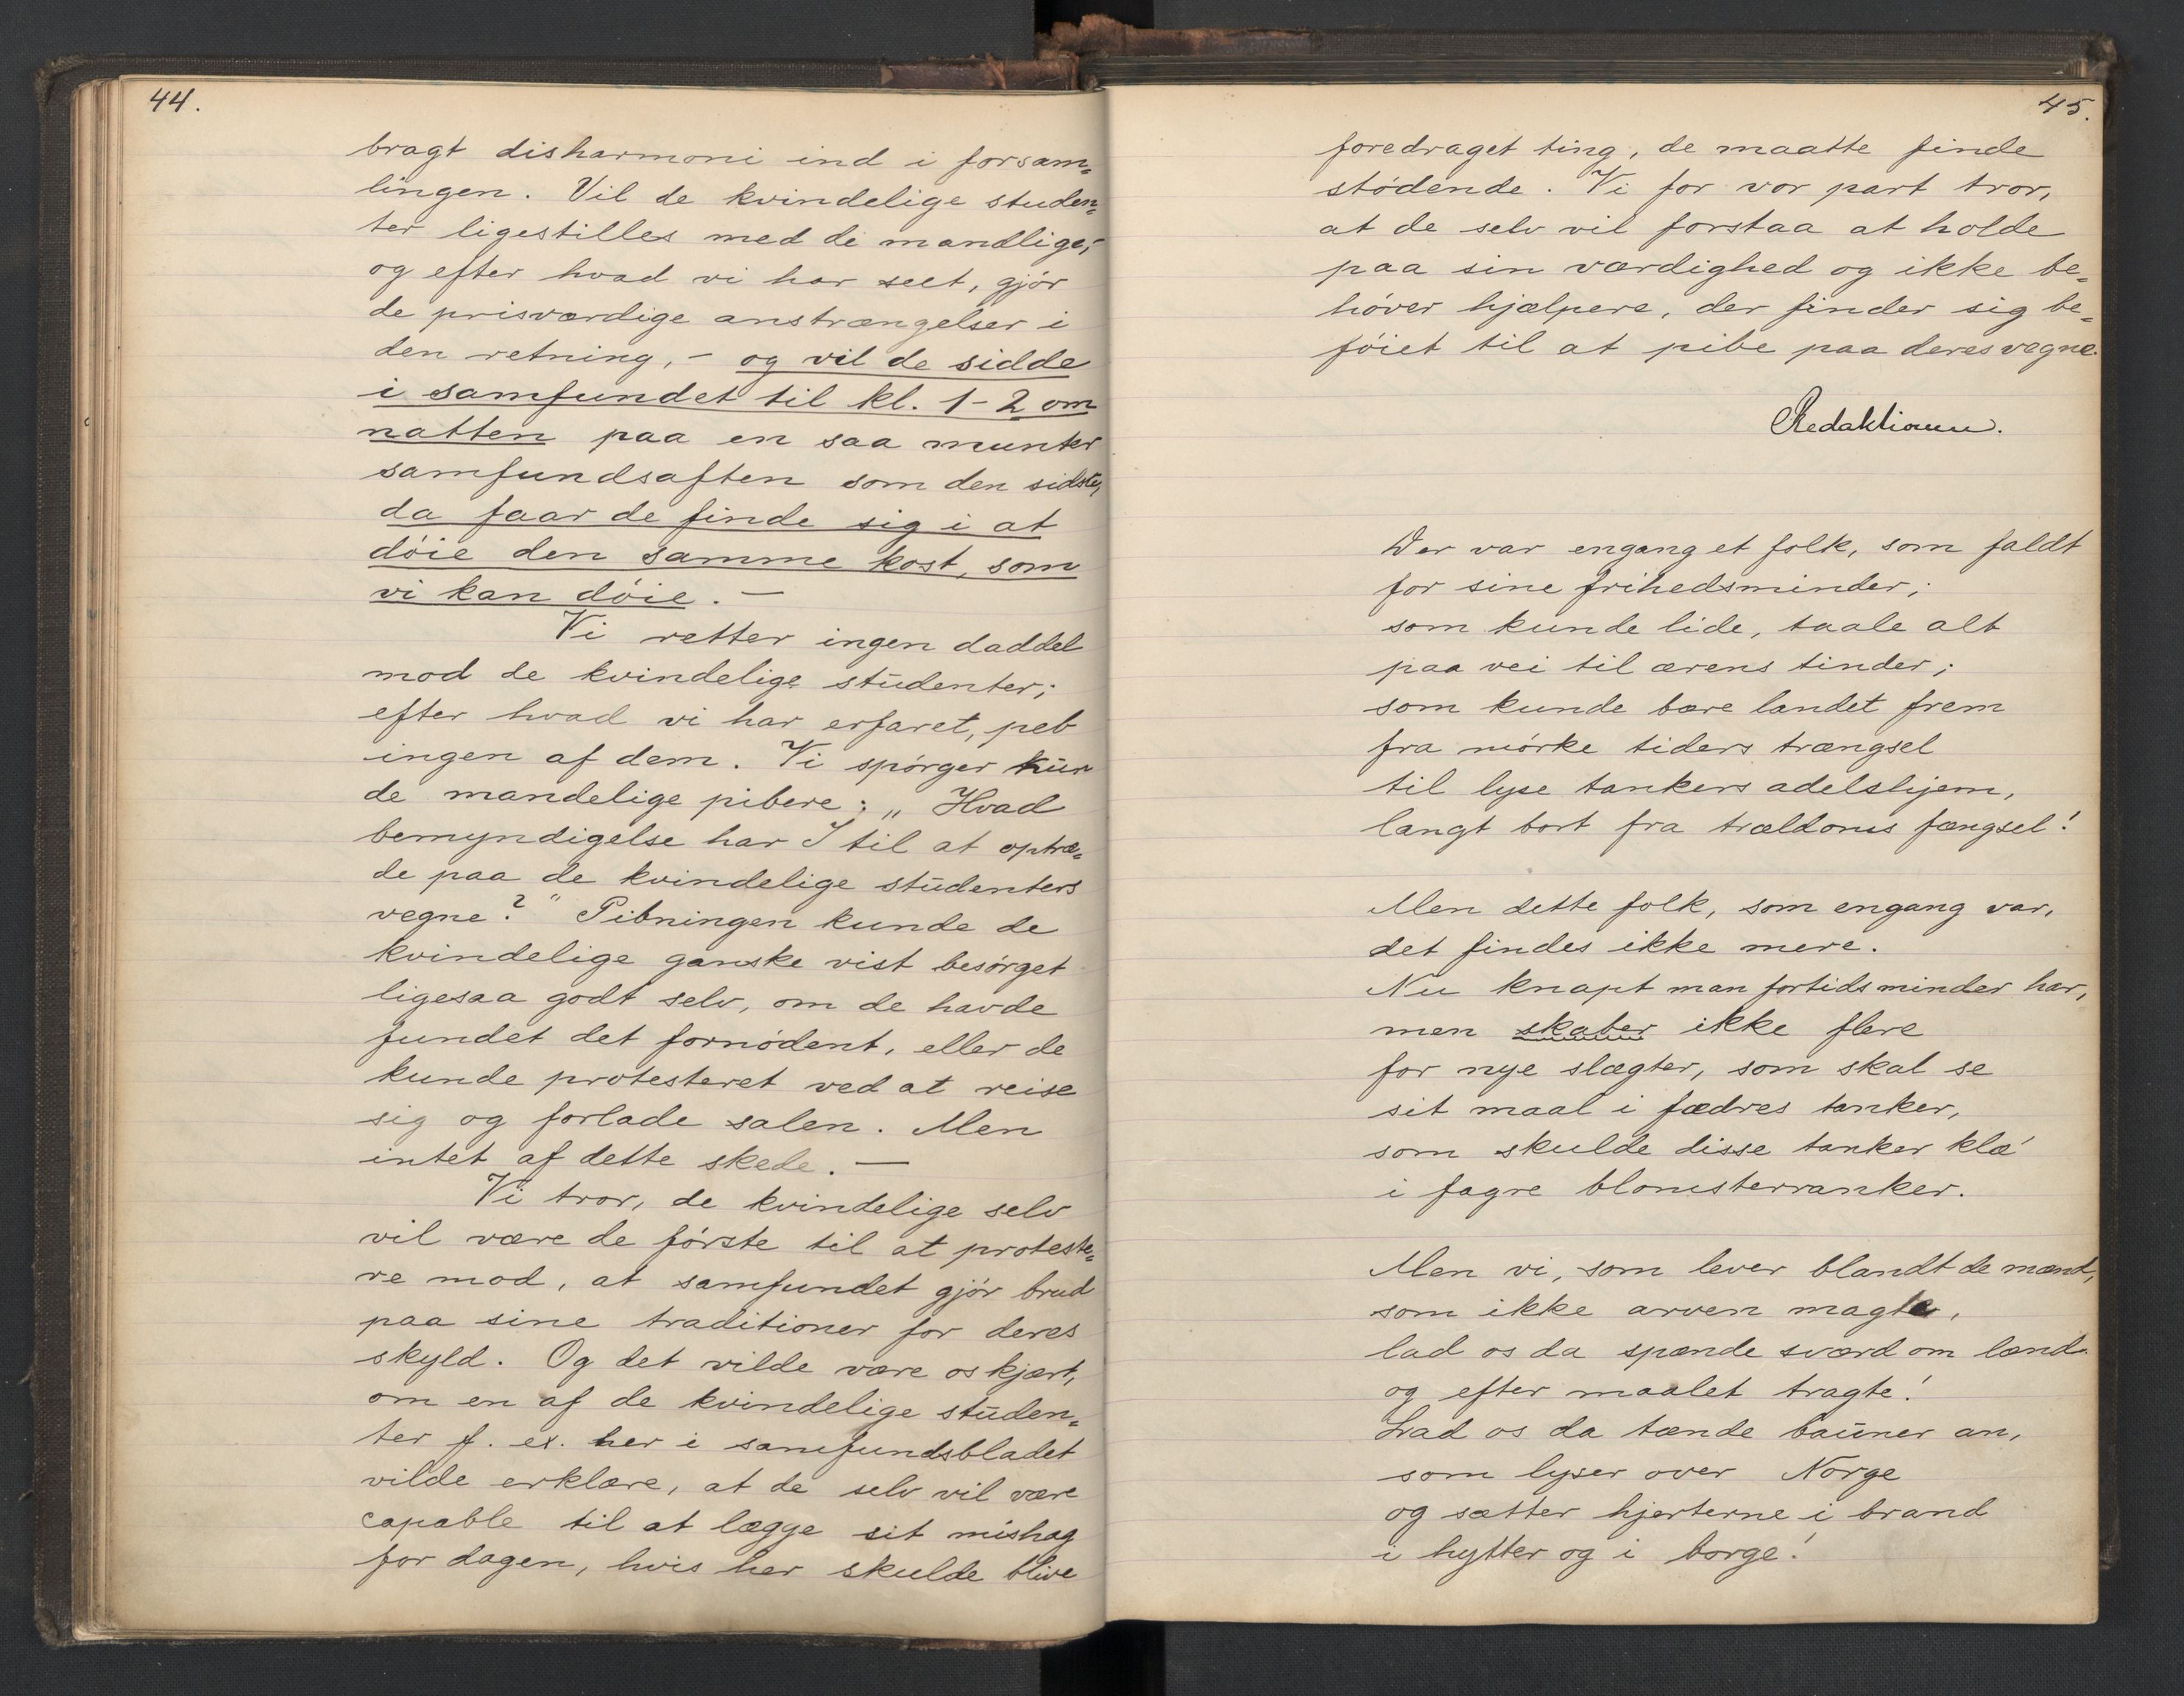 44.
bragt disharmoni ind i forsam=
lingen. Vil de kvindelige studen=
ter ligestilles med de mandlige,-
og efter hvad vi har seet, gjör
de prisværdige anstrængelser i
den retning, - og vil de sidde
i samfundet til kl. 1-2 om
natten paa en saa munter
samfundsaften som den sidste,
da faar de finde sig i at
döie den samme kost, som
vi kan döie. -
Vi retter ingen daddel
mod de kvindelige studenter;
efter hvad vi har erfaret, peb
ingen af dem. Vi spörger kun
de mandelige pibere: „Hvad
bemyndigelse har I til at optræ=
de paa de kvindelige studenters
vegne?" Pibningen kunde de
kvindelige ganske vist besörget
ligesaa godt selv, om de havde
fundet det fornödent, eller de
kunde protesteret ved at reise
sig og forlade salen. Men
intet af dette skede. -
Vi tror, de kvindelige selv
vil være de förste til at proteste=
re mod, at samfundet gjör brud
paa sine traditioner for deres
skyld. Og det vilde være os kjært,
om en af de kvindelige studen=
ter f. ex. her i samfundsbladet
vilde erklære, at de selv vil være
capable til at lægge sit mishag
for dagen, hvis her skulde blive
45.
foredraget ting, de maatte finde
stödende. Vi for vor part tror,
at de selv vil forstaa at holde
paa sin værdighed og ikke be=
höver hjælpere, der finder sig be=
föiet til at pibe paa deres vegne.
Redaktionen.
Der var engang et folk, som faldt
for sine frihedsminder;
som kunde lide, taale alt
paa vei til ærens tinder;
som kunde bære landet frem
fra mörke tiders trængsel
til lyse tankers adelshjem,
langt bort fra trældoms fængsel!
Men dette folk, som engang var,
det findes ikke mere.
Nu knapt man fortidsminder har,
men skaber ikke flere
for nye slægter, som skal se
sit maal i fædres tanker,
som skulde disse tanker klæ'
i fagre blomsterranker.
Men vi, som lever blandt de mænd,
som ikke arven magter,
lad os da spænde sværd om lænd
og efter maalet tragte!
Lad os da tænde bauner an,
som lyser over Norge
og sætter hjerterne i brand
i hytter og i borge!